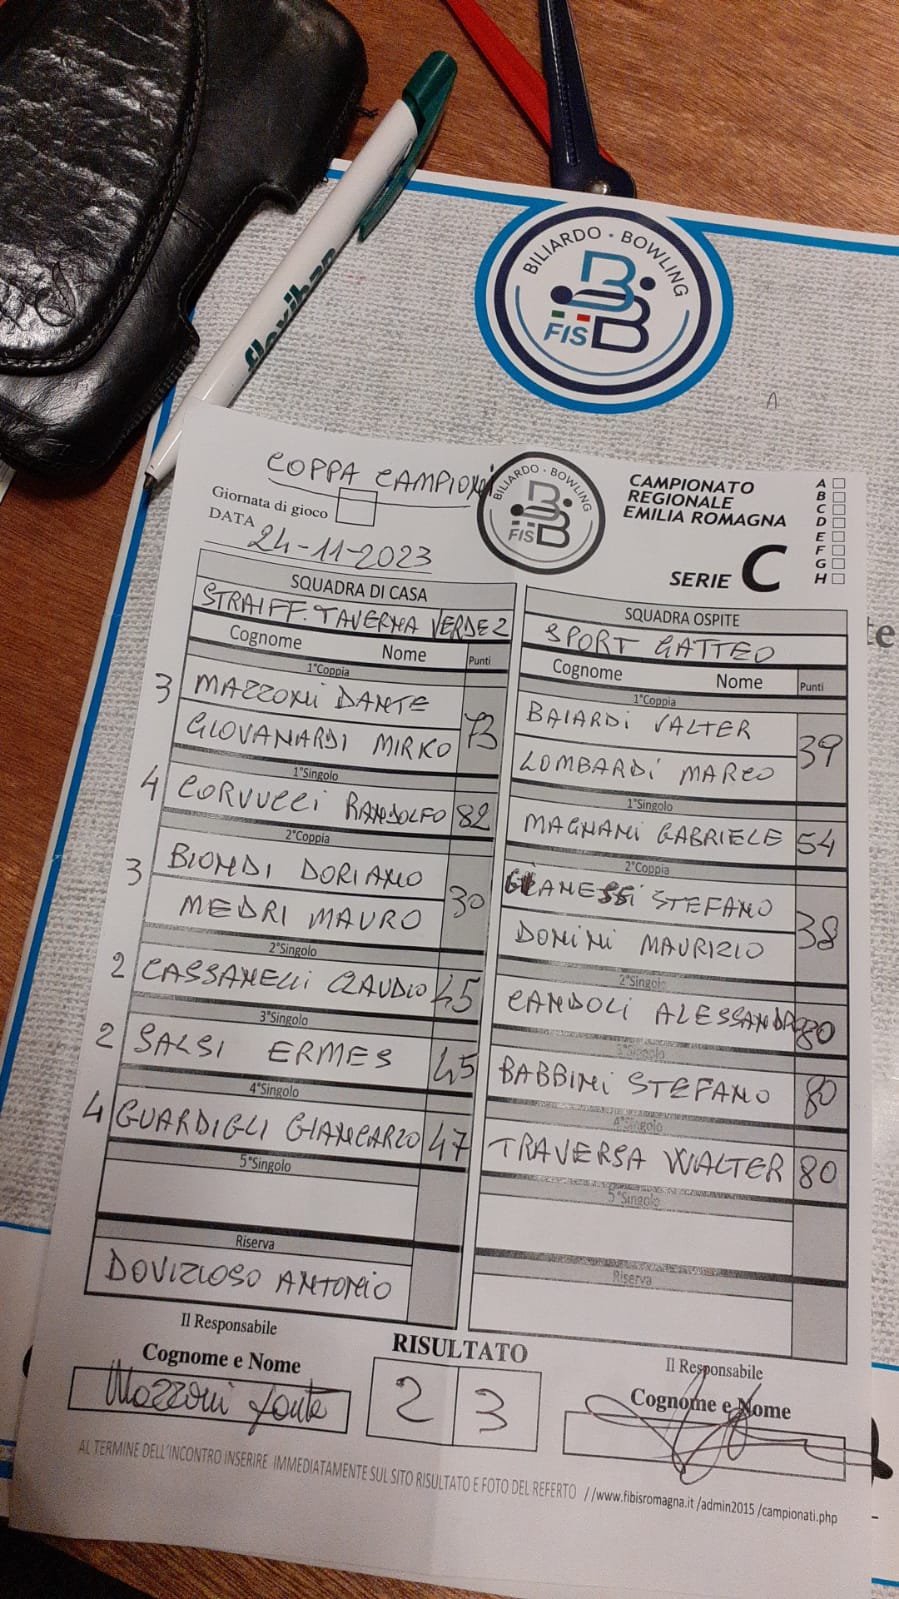 BILIARDO · BOWLING
FISBB
flexibar
COPPA CAMPIONI
Giornata di gioco
DATA 24-11-2023
BILIARDO · BOWLING
FISBB
CAMPIONATO
REGIONALE
EMILIA ROMAGNA
SERIE C
A
B
C
D
E
F
G
H
SQUADRA DI CASA
STRAIFF. TAVERNA VERDE 2
Cognome Nome Punti
1°Coppia
3 MAZZONI DANTE 73
GIOVANARDI MIRKO
1°Singolo
4 CORVUCCI RANDOLFO 82
2°Coppia
3 BIONDI DORIANO 30
MEDRI MAURO
2°Singolo
2 CASSANELLI CLAUDIO 45
3°Singolo
2 SALSI ERMES 45
4°Singolo
4 GUARDIGLI GIANCARLO 47
5°Singolo
Riserva
DOVIZIOSO ANTONIO
SQUADRA OSPITE
SPORT GATTEO
Cognome Nome Punti
1°Coppia
BAIARDI VALTER 39
LOMBARDI MARCO
1°Singolo
MAGNANI GABRIELE 54
2°Coppia
STEFANO 38
DONINI MAURIZIO
2°Singolo
CANDOLI ALESSANDRO 80
3°Singolo
BABBINI STEFANO 80
4°Singolo
TRAVERSA WALTER 80
5°Singolo
Riserva
Il Responsabile
Cognome e Nome
Mazzoni Dante
RISULTATO
2 3
Il Responsabile
Cognome e Nome
AL TERMINE DELL'INCONTRO INSERIRE IMMEDIATAMENTE SUL SITO RISULTATO E FOTO DEL REFERTO //www.fibisromagna.it /admin2015 /campionati.php